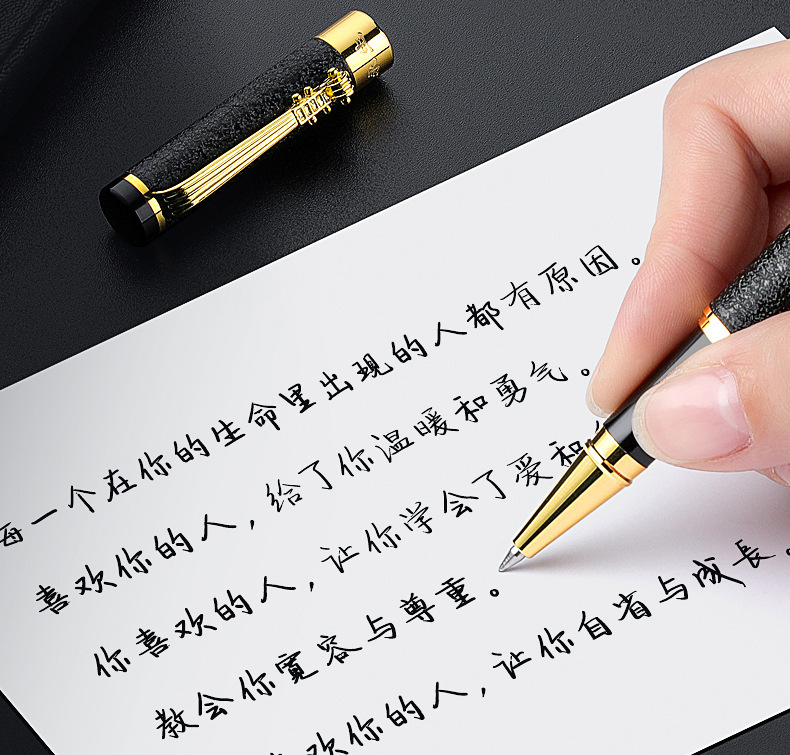 每一个在你的生命里出现的人都有原因。
喜欢你的人，给了你温暖和勇气。
你喜欢的人，让你学会了爱和
教会你宽容与尊重。
欢你的人，让你自省与成長。